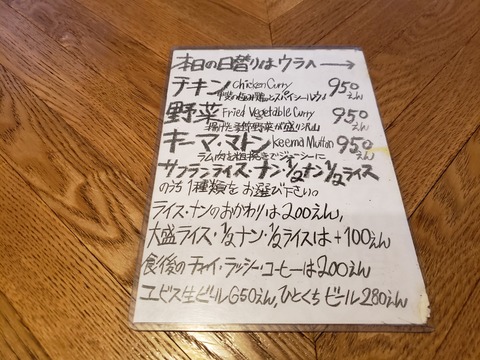 本日の日替りはウラへ→
チキン chicken Curry 950えん
野菜 Fried Vegetable Curry 950えん
揚げた季節野菜が盛り沢山
キーマ・マトン Keema Mutton 950えん
ラム肉を粗挽きでジューシーに
サフランライス・ナン・1/2ナン1/2ライス
のうち1種類をお選び下さい。
ライス・ナンのおかわりは200えん,
大盛ライス・1/2ナン・1/2ライスは+100えん
食後のチャイ・ラッシー・コーヒーは200えん
ヱビス生ビール650えん,ひとくちビール280えん